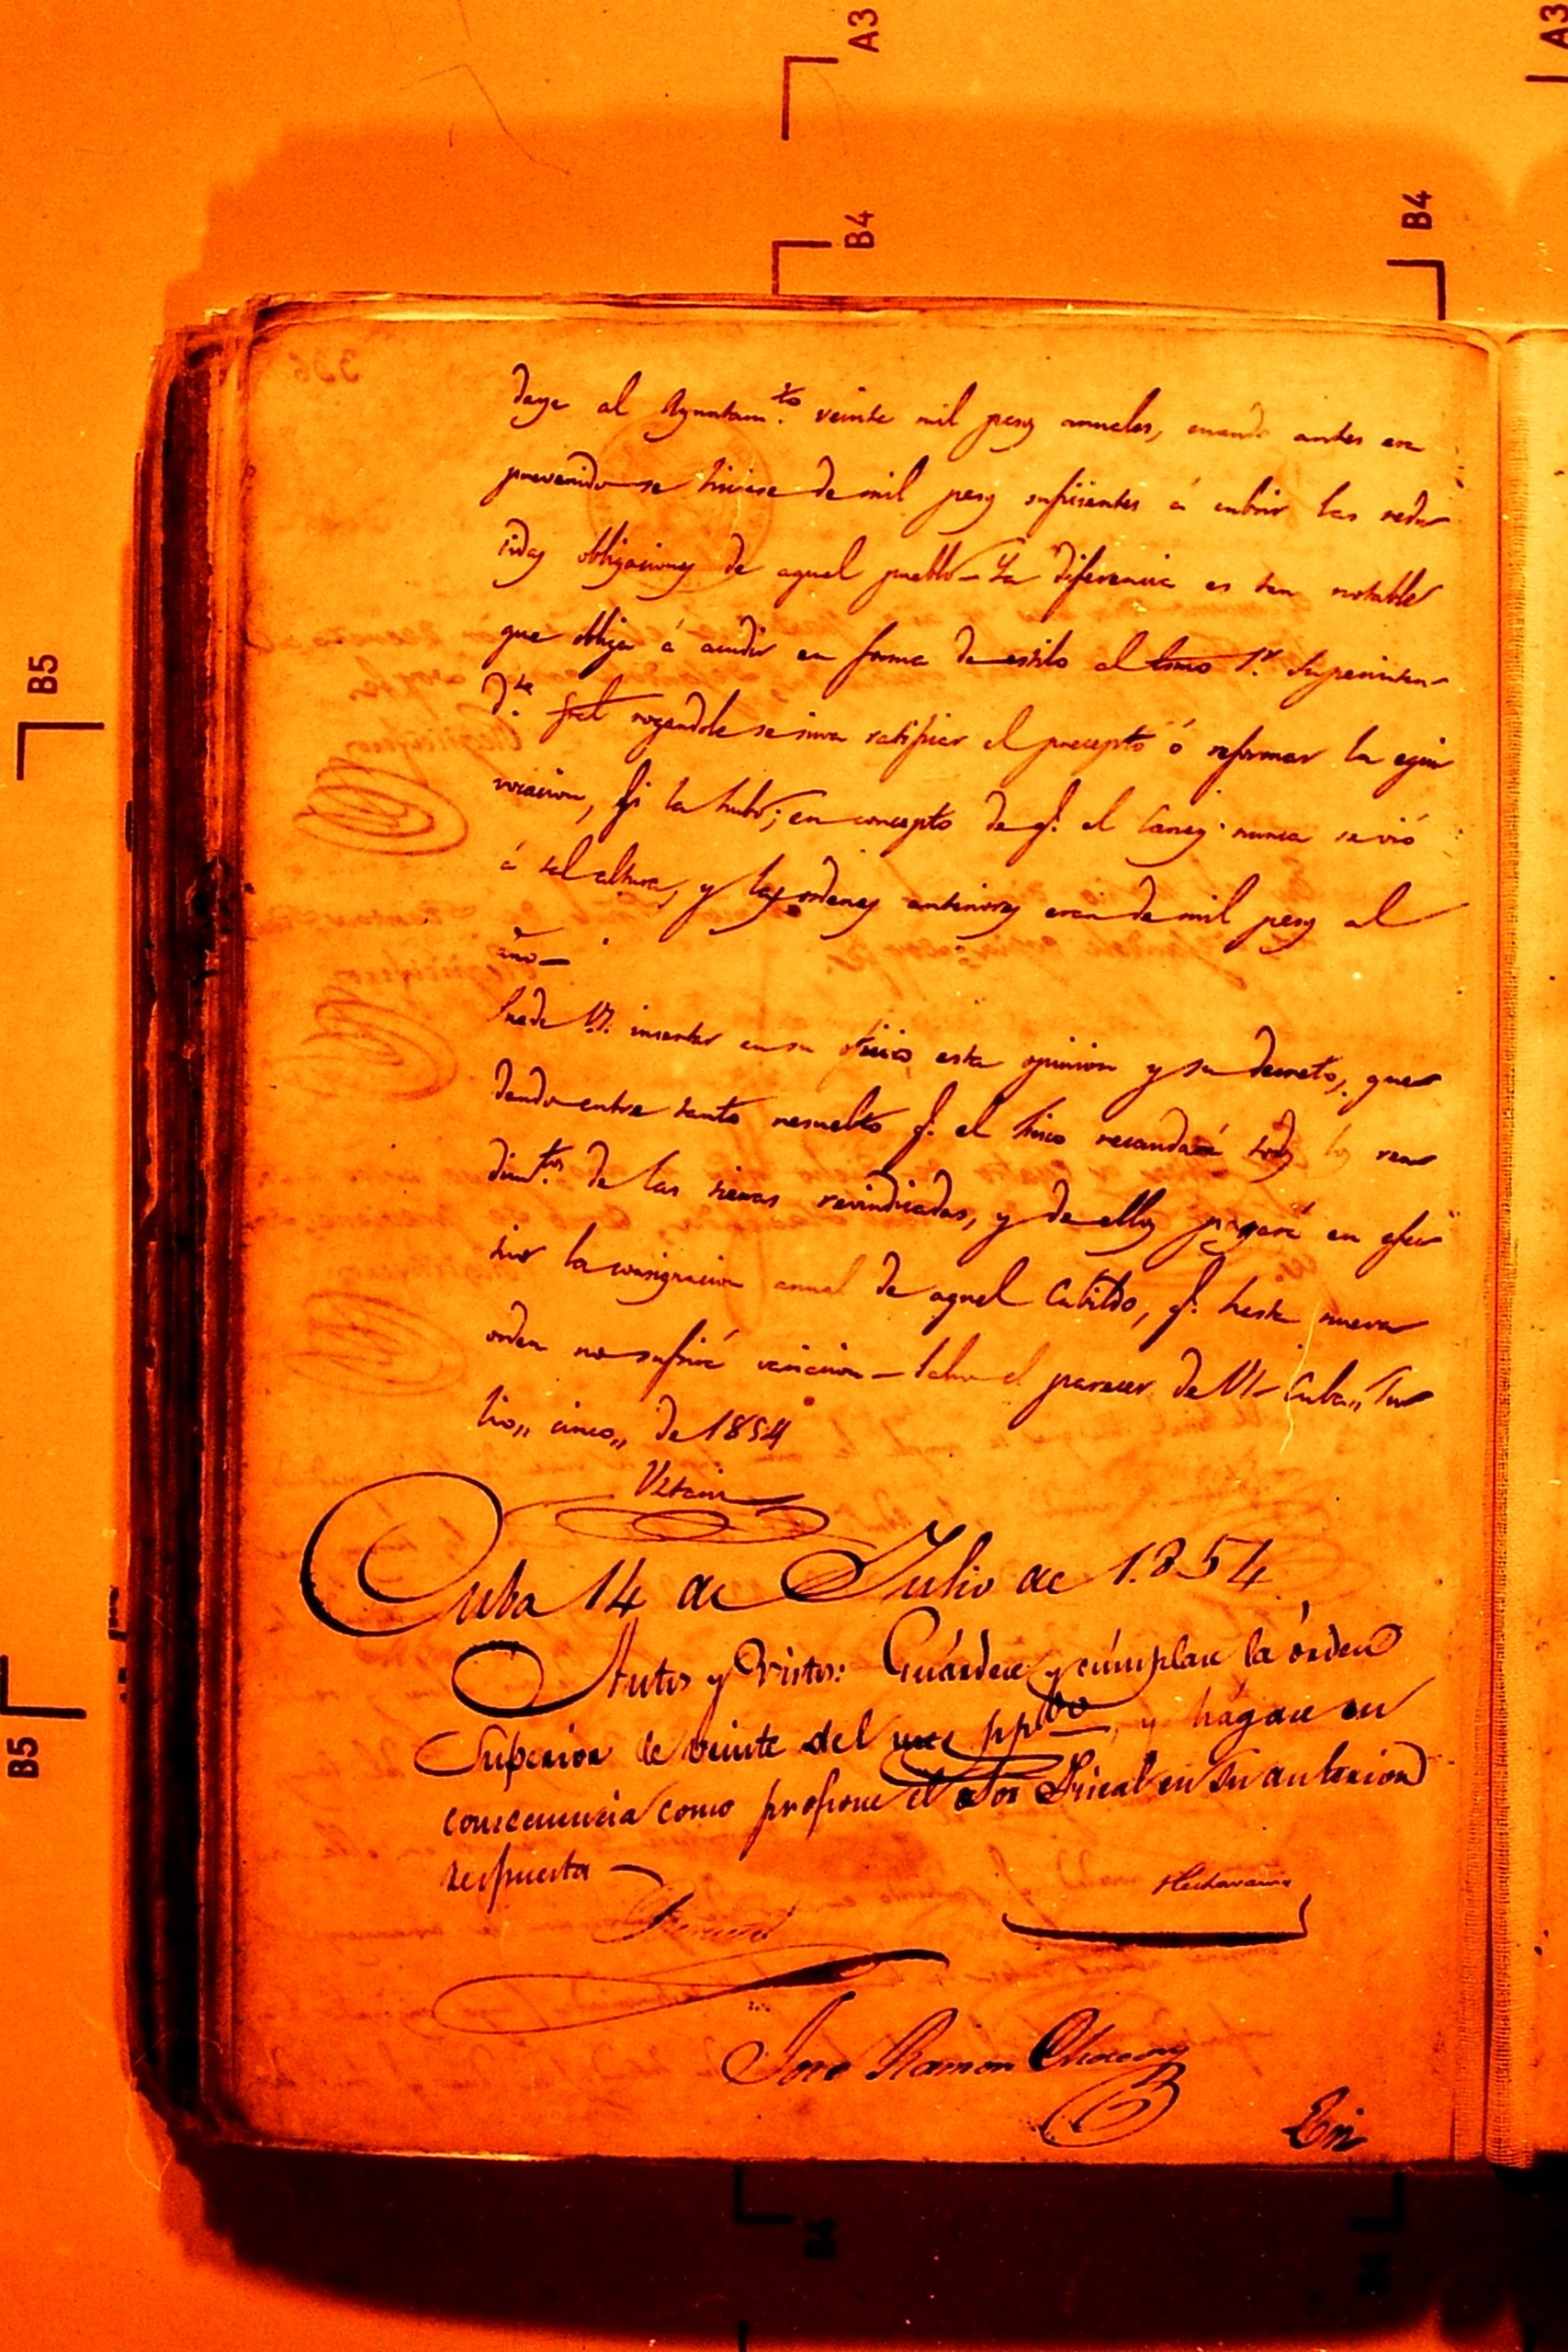 A3
A3
B4
B4
daye al Ayuntam.to veinte mil pesos anuales, cuando antes era
prevenido se hiciese de mil pesos suficientes á cubrir las redu
cidas obligaciones de aquel pueblo - La diferencia es tan notable
que obliga á acudir en forma de estilo al Exmo S.r Superinten-
d.te gral rogandole se sirva ratificar el precepto ó reformar la equi
vocacion, si la hubo; en concepto de q.e el Caney nunca se vió
á tal altura, y las ordenes anteriores eran de mil pesos al
año—
Puede VS. insertar en su oficio esta opinion y su decreto, que
dando entre tanto resuelto q.e el fisco recaudará todos los ren
dim.tos de las tierras revindicadas, y de ellos pagará en efec
tivo la consignacion anual de aquel Cabildo, q.e hasta nueva
orden no sufrirá variacion - Salvo el parecer de VS - Cuba,, Ju
lio,, cinco,, de 1854
Cuba 14 de Julio de 1.854
Autos y Vistos: Guárdese y cúmplase la órden
Superior de veinte del mes pp.do, y hágase en
consecuencia como propone el Sor Fiscal en su anterior
respuesta
Hechavarria
José Ramon
En
B5
B5
B4
B4